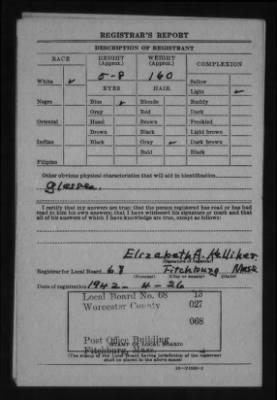 REGISTRAR'S REPORT
DESCRIPTION OF REGISTRANT
RACE HEIGHT (Approx.) WEIGHT (Approx.) COMPLEXION
White ✓ 5-8 160 Sallow
EYES HAIR Light ✓
Negro Blue ✓ Blonde Ruddy
Gray Red Dark
Oriental Hazel Brown Freckled
Brown Black Light brown
Indian Black Gray ✓ Dark brown
Bald Black
Filipino
Other obvious physical characteristics that will aid in identification
glasses.
I certify that my answers are true; that the person registered has read or has had
read to him his own answers; that I have witnessed his signature or mark and that
all of his answers of which I have knowledge are true, except as follows:
Elizabeth A. Kelliher
Registrar for Local Board 68 Fitchburg Mass
(Number) (City or county) (State)
Date of registration 1942-4-26
Local Board No. 68 13
Worcester County 027
068
Post Office Building
STAMP OF LOCAL BOARD
Fitchburg, Mass.
(The stamp of the Local Board having jurisdiction of the registrant
shall be placed in the above space)